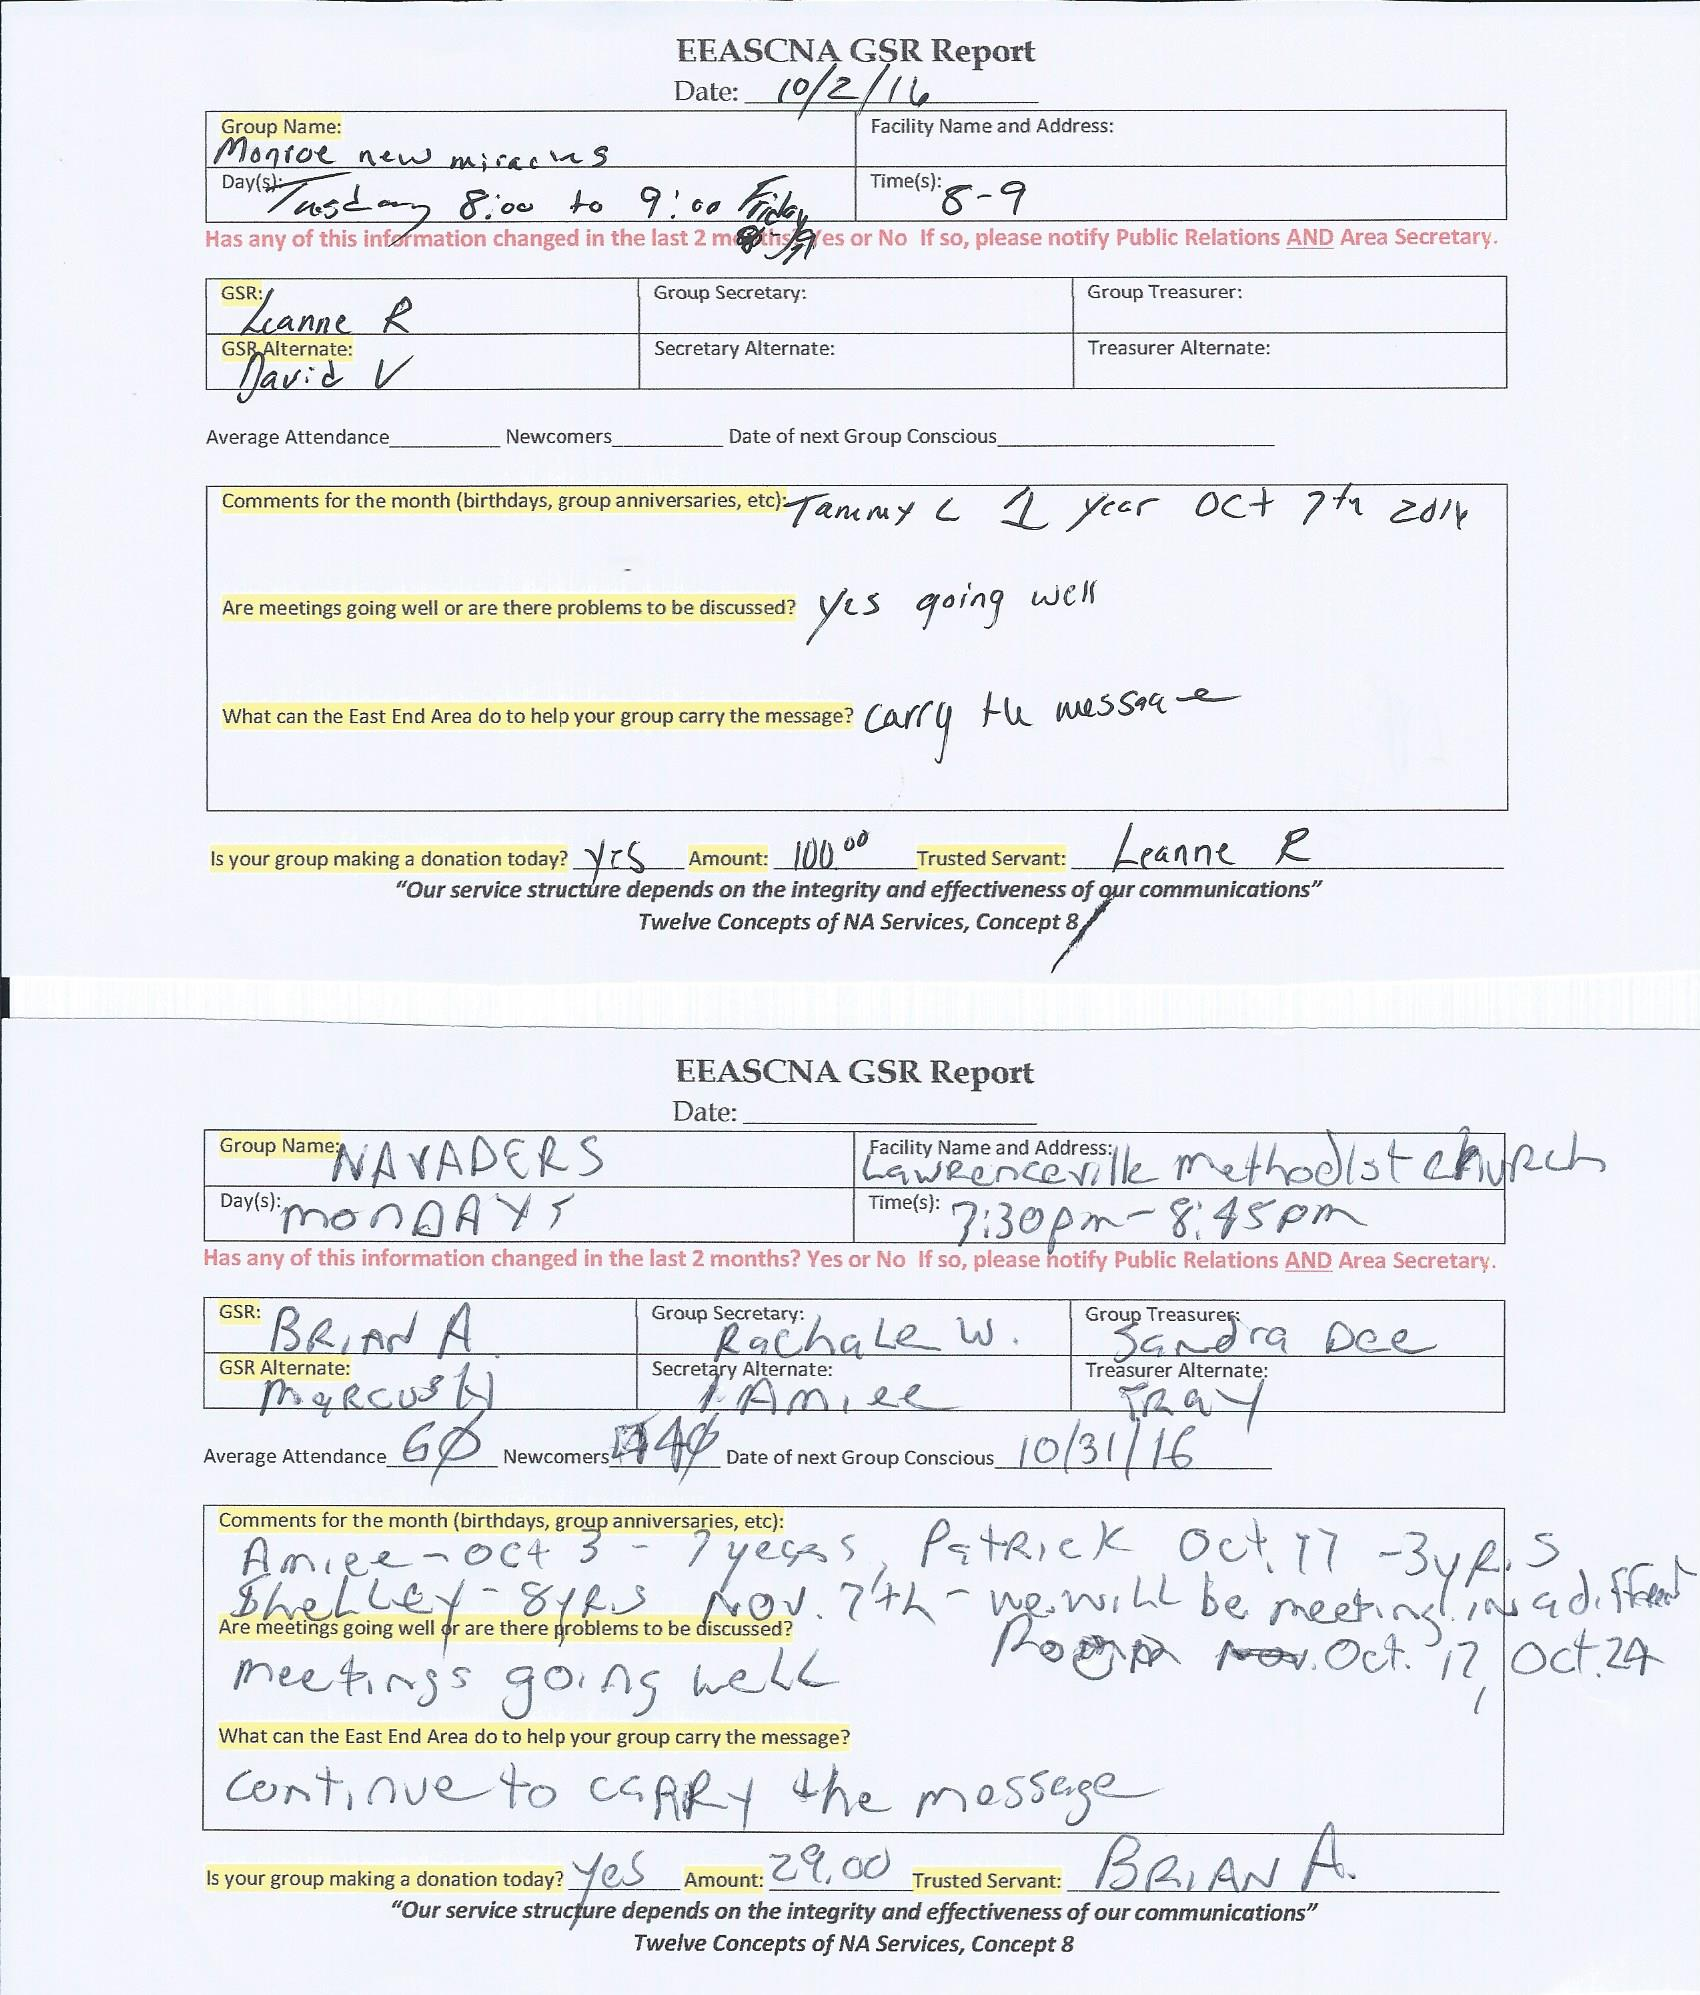 EEASCNA GSR Report
Date: 10/2/16
Group Name: Facility Name and Address:
Monroe new miracles
Day(s): Tusday 8:00 to 9:00 Friday 8-9 Time(s): 8-9
Has any of this information changed in the last 2 months? Yes or No If so, please notify Public Relations AND Area Secretary.
GSR: Leanne R Group Secretary: Group Treasurer:
GSR Alternate: David V Secretary Alternate: Treasurer Alternate:
Average Attendance Newcomers Date of next Group Conscious
Comments for the month (birthdays, group anniversaries, etc): Tammy L 1 year Oct 7th 2016
Are meetings going well or are there problems to be discussed? yes going well
What can the East End Area do to help your group carry the message? carry the message
Is your group making a donation today? yes Amount: 100.00 Trusted Servant: Leanne R
“Our service structure depends on the integrity and effectiveness of our communications”
Twelve Concepts of NA Services, Concept 8
EEASCNA GSR Report
Date:
Group Name: NAVADERS Facility Name and Address: Lawrenceville Methodist Church
Day(s): MONDAYS Time(s): 7:30pm - 8:45pm
Has any of this information changed in the last 2 months? Yes or No If so, please notify Public Relations AND Area Secretary.
GSR: BRIAN A Group Secretary: Rachale W. Group Treasurer: Sandra Dee
GSR Alternate: Marcus Secretary Alternate: Amiee Treasurer Alternate: TRay
Average Attendance 60 Newcomers 40 Date of next Group Conscious 10/31/16
Comments for the month (birthdays, group anniversaries, etc):
Amiee - Oct 3 - 7 years, Patrick Oct. 17 - 3yrs
Shelley - 8yrs Nov. 7th - we will be meeting in a different
Room Nov. Oct. 17, Oct. 24
Are meetings going well or are there problems to be discussed?
meetings going well
What can the East End Area do to help your group carry the message?
continue to carry the message
Is your group making a donation today? yes Amount: 29.00 Trusted Servant: BRIAN A.
“Our service structure depends on the integrity and effectiveness of our communications”
Twelve Concepts of NA Services, Concept 8